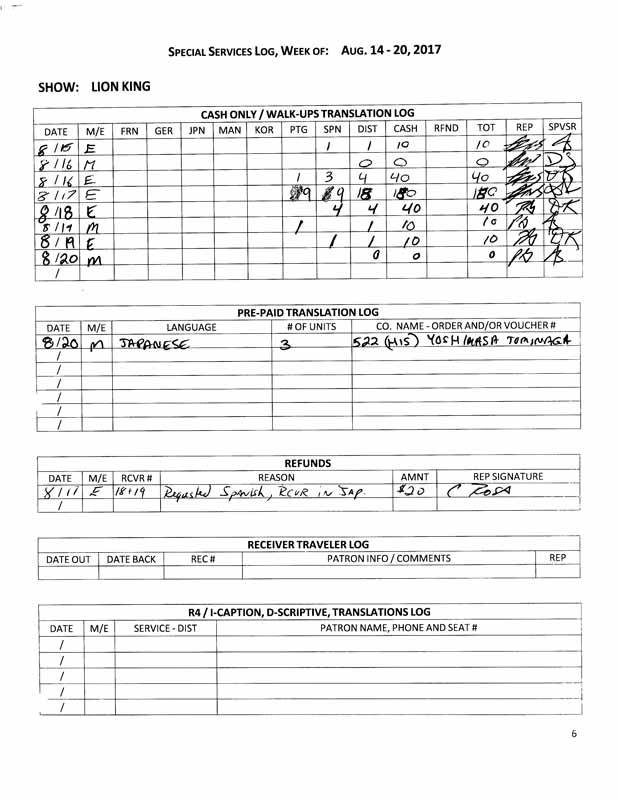 SPECIAL SERVICES LOG, WEEK OF: AUG. 14 - 20, 2017
SHOW: LION KING
CASH ONLY / WALK-UPS TRANSLATION LOG
DATE M/E FRN GER JPN MAN KOR PTG SPN DIST CASH RFND TOT REP SPVSR
8/15 E 1 1 10 10
8/16 M 0 0 0 DS
8/16 E 1 3 4 40 40
8/17 E 9 9 18 180 180
8/18 E 4 4 40 40 DK
8/19 M 1 1 10 10
8/19 E 1 1 10 10 DK
8/20 M 0 0 0
/
PRE-PAID TRANSLATION LOG
DATE M/E LANGUAGE # OF UNITS CO. NAME - ORDER AND/OR VOUCHER #
8/20 M JAPANESE 3 522 (HIS) YOSHIMASA TOMINAGA
/
/
/
/
/
/
REFUNDS
DATE M/E RCVR # REASON AMNT REP SIGNATURE
8/17 E 18+19 Requested Spanish, RCVR in JAP. $20 C ROSA
/
RECEIVER TRAVELER LOG
DATE OUT DATE BACK REC # PATRON INFO / COMMENTS REP
R4 / I-CAPTION, D-SCRIPTIVE, TRANSLATIONS LOG
DATE M/E SERVICE - DIST PATRON NAME, PHONE AND SEAT #
/
/
/
/
/
6